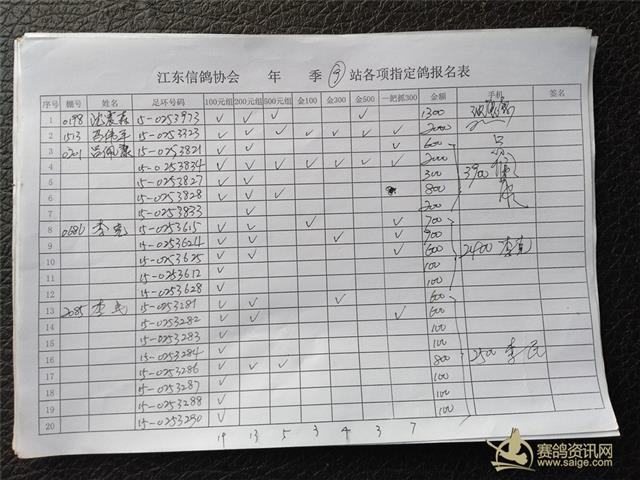 江东信鸽协会 年 季 站各项指定鸽报名表
序号 棚号 姓名 足环号码 100元组 200元组 500元组 金100 金300 金500 一把抓300 金额 手机 签名
1 0198 15-0253973 ✓ ✓ ✓ ✓ 1300
2 1513 15-0253323 ✓ ✓ ✓ ✓ ✓ ✓ ✓ 2000
3 0201 15-0253821 ✓ ✓ ✓ 600
4 15-0253834 ✓ ✓ ✓ ✓ ✓ ✓ ✓ 2000
5 15-0253827 ✓ ✓ 300 3900
6 15-0253828 ✓ ✓ ✓ 800
7 15-0253833 ✓ 200
8 0686 李亮 15-0253615 ✓ ✓ ✓ ✓ 700
9 15-0253624 ✓ ✓ ✓ ✓ 900
10 15-0253625 ✓ ✓ ✓ 600 2400 李亮
11 15-0253612 ✓ 100
12 15-0253628 ✓ 100
13 2085 李民 15-0253281 ✓ ✓ ✓ 600
14 15-0253282 ✓ ✓ ✓ 600
15 15-0253283 ✓ 100
16 15-0253284 ✓ 100
17 15-0253286 ✓ ✓ ✓ 800 2500 李民
18 15-0253287 ✓ 100
19 15-0253288 ✓ 100
20 15-0253290 ✓ 100
19 13 5 3 4 3 7
赛鸽资讯网
www.saige.com